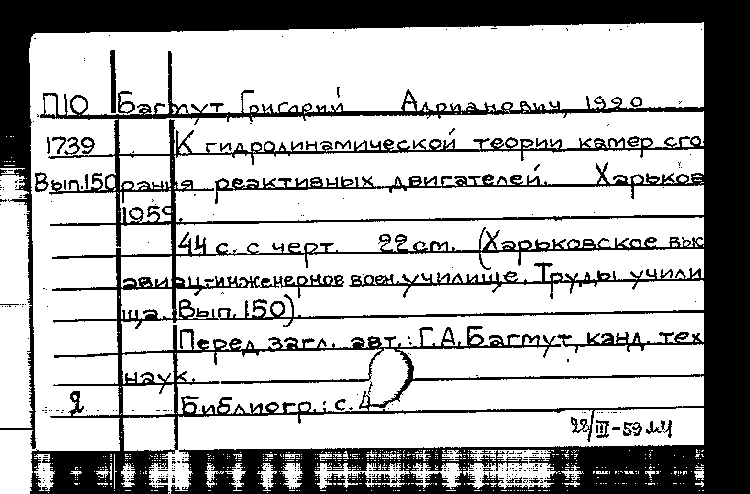 П10 Багмут, Григорий Адрианович, 1920
1739 К гидродинамической теории камер сго
Вып.150 рания реактивных двигателей. Харьков
1959.
44 с. с черт. 22 cm. (Харьковское выс
авиац.-инженерное воен. училище. Труды учили
ща. Вып. 150).
Перед загл. авт.: Г.А. Багмут, канд. тех
наук.
2 Библиогр.: с.
22/III-59